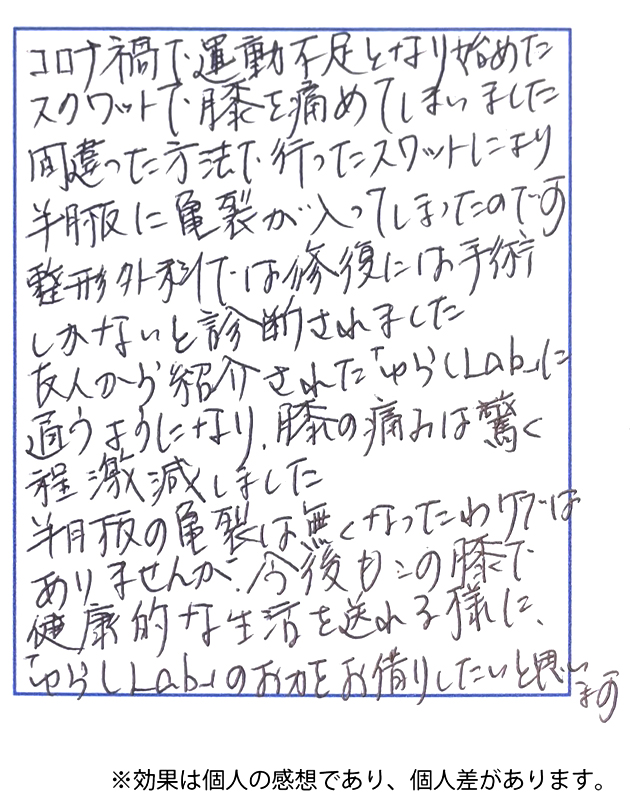 コロナ禍で運動不足となり始めた
スクワットで膝を痛めてしまいました
間違った方法で行ったスワットにより
半月板に亀裂が入ってしまったのです
整形外科では修復には手術
しかないと診断されました
友人から紹介された「ゆらしLab」に
通うようになり、膝の痛みは驚く
程激減しました
半月板の亀裂は無くなったわけでは
ありませんが、今後もこの膝で
健康的な生活を送れる様に、
「ゆらしLab」のお力をお借りしたいと思います
※効果は個人の感想であり、個人差があります。